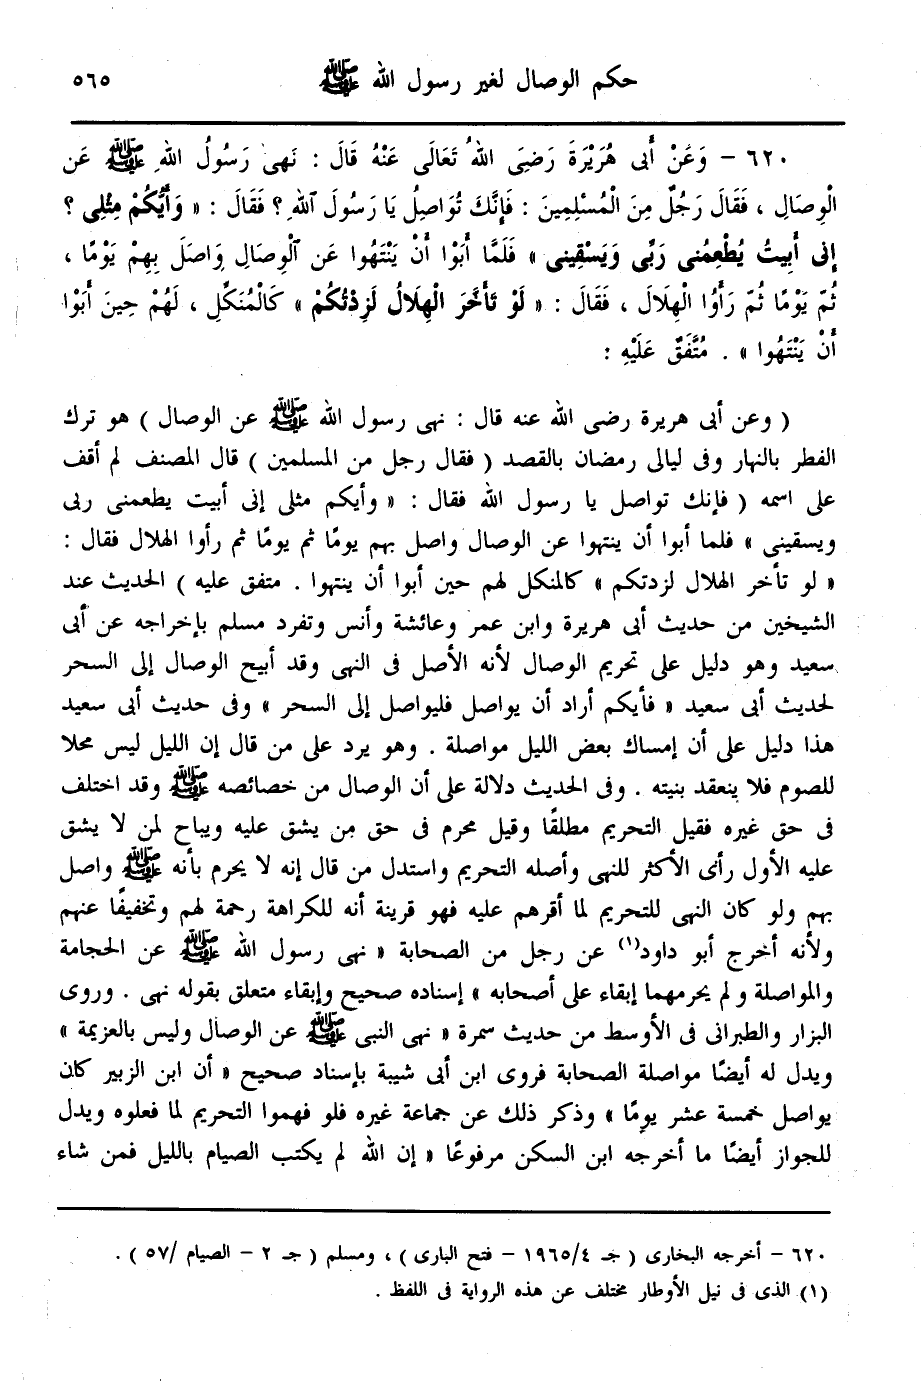 حكم الوصال لغير رسول الله ﷺ ٥٦٥
٦٢٠ - وَعَنْ أَبِى هُرَيْرَةَ رَضِىَ اللهُ تَعَالَى عَنْهُ قَالَ : نَهىٰ رَسُولُ اللهِ ﷺ عَنِ
الْوِصَالِ ، فَقَالَ رَجُلٌ مِنَ الْمُسْلِمِينَ : فَإِنَّكَ تُوَاصِلُ يَا رَسُولَ اللهِ ؟ فَقَالَ : « وَأَيُّكُمْ مِثْلِى ؟
إِنى أَبِيتُ يُطْعِمُنى رَبِّى وَيَسْقِينى » فَلَمَّا أَبَوْا أَنْ يَنْتَهُوا عَنِ الْوِصَالِ وَاصَلَ بِهِمْ يَوْمًا ،
ثُمَّ يَوْمًا ثُمَّ رَأَوُا الْهِلَالَ ، فَقَالَ : « لَوْ تَأَخَّرَ الْهِلَالُ لَزِدْتُكُمْ » كَالْمُنَكِّلِ ، لَهُمْ حِينَ أَبَوْا
أَنْ يَنْتَهُوا » . مُتَّفَقٌ عَلَيْهِ :
( وعن أبى هريرة رضى الله عنه قال : نهى رسول الله ﷺ عن الوصال ) هو ترك
الفطر بالنهار وفى ليالى رمضان بالقصد ( فقال رجل من المسلمين ) قال المصنف لم أقف
على اسمه ( فإنك تواصل يا رسول الله فقال : « وأيكم مثلى إنى أبيت يطعمنى ربى
ويسقينى » فلما أبوا أن ينتهوا عن الوصال واصل بهم يومًا ثم يومًا ثم رأوا الهلال فقال :
« لو تأخر الهلال لزدتكم » كالمنكل لهم حين أبوا أن ينتهوا . متفق عليه ) الحديث عند
الشيخين من حديث أبى هريرة وابن عمر وعائشة وأنس وتفرد مسلم بإخراجه عن أبى
سعيد وهو دليل على تحريم الوصال لأنه الأصل فى النهى وقد أبيح الوصال إلى السحر
لحديث أبى سعيد « فأيكم أراد أن يواصل فليواصل إلى السحر » وفى حديث أبى سعيد
هذا دليل على أن إمساك بعض الليل مواصلة . وهو يرد على من قال إن الليل ليس محلا
للصوم فلا ينعقد بنيته . وفى الحديث دلالة على أن الوصال من خصائصه ﷺ وقد اختلف
فى حق غيره فقيل التحريم مطلقًا وقيل محرم فى حق من يشق عليه ويباح لمن لا يشق
عليه الأول رأى الأكثر للنهى وأصله التحريم واستدل من قال إنه لا يحرم بأنه ﷺ واصل
بهم ولو كان النهى للتحريم لما أقرهم عليه فهو قرينة أنه للكراهة رحمة لهم وتخفيفًا عنهم
ولأنه أخرج أبو داود(١) عن رجل من الصحابة « نهى رسول الله ﷺ عن الحجامة
والمواصلة ولم يحرمهما إبقاء على أصحابه » إسناده صحيح وإبقاء متعلق بقوله نهى . وروى
البزار والطبرانى فى الأوسط من حديث سمرة « نهى النبى ﷺ عن الوصال وليس بالعزيمة »
ويدل له أيضًا مواصلة الصحابة فروى ابن أبى شيبة بإسناد صحيح « أن ابن الزبير كان
يواصل خمسة عشر يومًا » وذكر ذلك عن جماعة غيره فلو فهموا التحريم لما فعلوه ويدل
للجواز أيضًا ما أخرجه ابن السكن مرفوعًا « إن الله لم يكتب الصيام بالليل فمن شاء
٦٢٠ - أخرجه البخارى ( جـ ١٩٦٥/٤ - فتح البارى ) ، ومسلم ( جـ ٢ - الصيام /٥٧ ) .
(١) الذى فى نيل الأوطار مختلف عن هذه الرواية فى اللفظ .